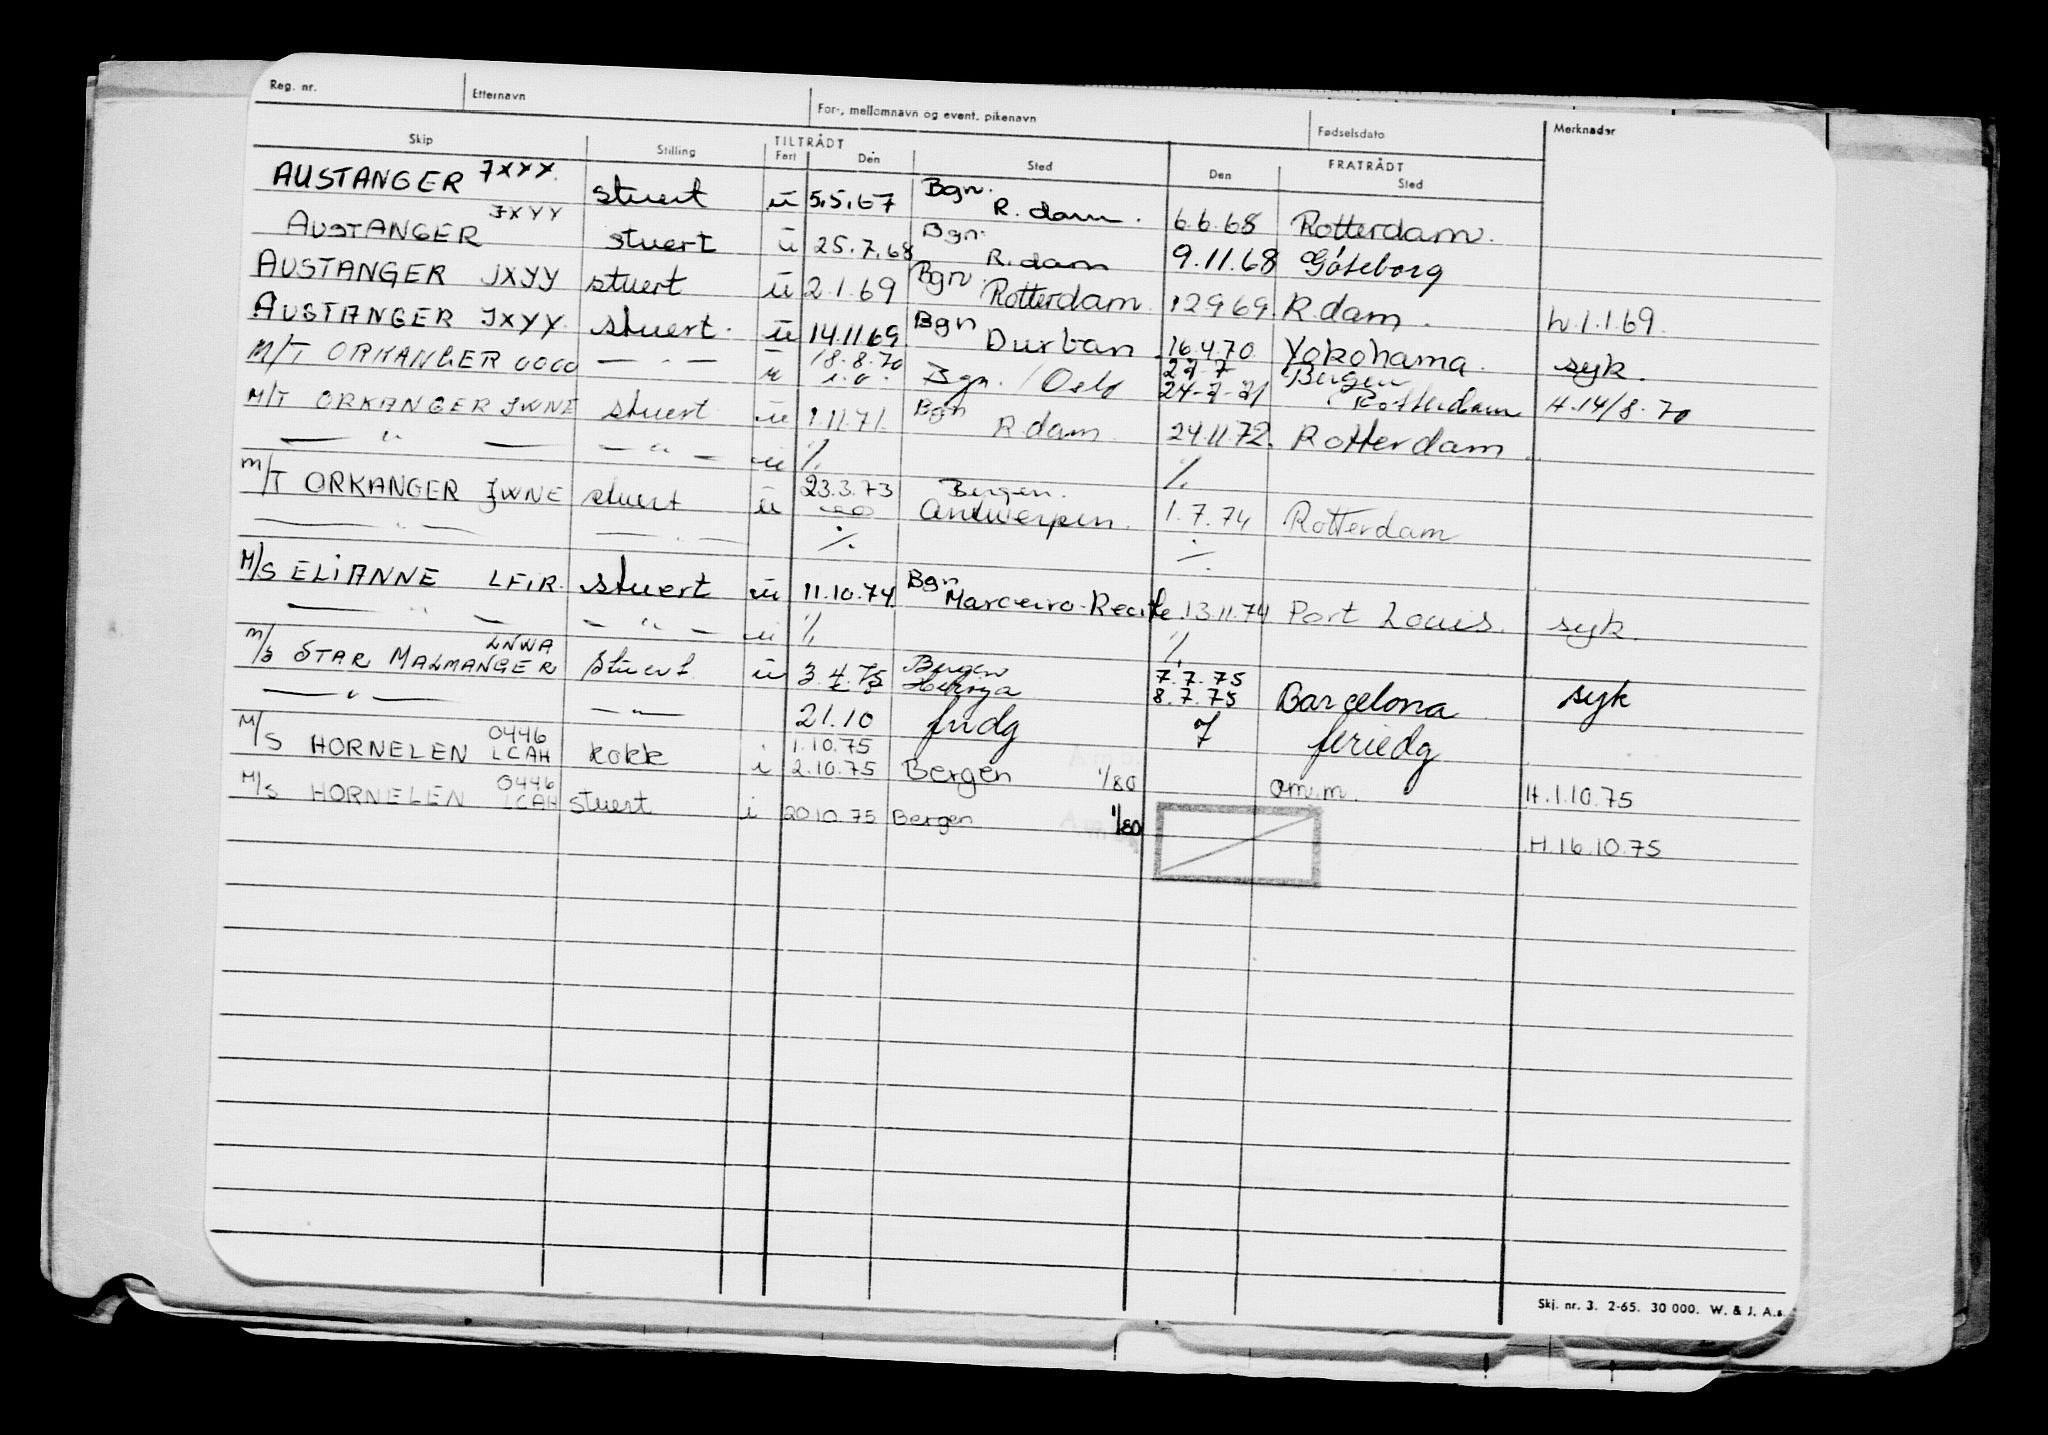 Reg. nr. Etternavn For-, mellomnavn og event. pikenavn Fødselsdato Merknader
TILTRÅDT FRATRÅDT
Skip Stilling Fart Den Sted Den Sted
AUSTANGER JXXX. stuert ū 5.5.67 Bgn. R.dam. 6.6.68 Rotterdam.
AUSTANGER JXYY stuert ū 25.7.68 Bgn. R.dam 9.11.68 Göteborg
AUSTANGER JXYY stuert ū 2.1.69 Bgn. Rotterdam 12.9.69 R.dam. h.1.1.69.
AUSTANGER JXYY. stuert. ū 14.11.69 Bgn Durban 16.4.70 Yokohama. syk.
M/T ORKANGER 0000 — " — ū 18.8.70 Bgn. / Oslo 24-7-71 Bergen Rotterdam H.14/8.70
M/T ORKANGER JWNE stuert ū 1.11.71. Bgn R.dam. 24.11.72. Rotterdam
— " — — " — ū ./. ./.
M/T ORKANGER JWNE stuert ū 23.3.73 Bergen. Antwerpen. 1.7.74 Rotterdam
— " — — " — ./. ./.
M/S ELIANNE LFIR. stuert ū 11.10.74 Bgn Marceiro-Recife 13.11.74 Port Louis. syk.
— " — — " — ū ./. ./.
M/S STAR MALMANGER LNWA stuert ū 3.4.75 Bergen 7.7.75 8.7.75 Barcelona syk
— " — — " — 21.10 fridg 7 feriedg
M/S HORNELEN 0446 LCAH kokk i 1.10.75 2.10.75 Bergen 1/80 om.m. H.1.10.75
M/S HORNELEN 0446 LCAH stuert i 20.10.75 Bergen 1/80 H.16.10.75
Skj. nr. 3. 2-65. 30 000. W. & J. A.s.